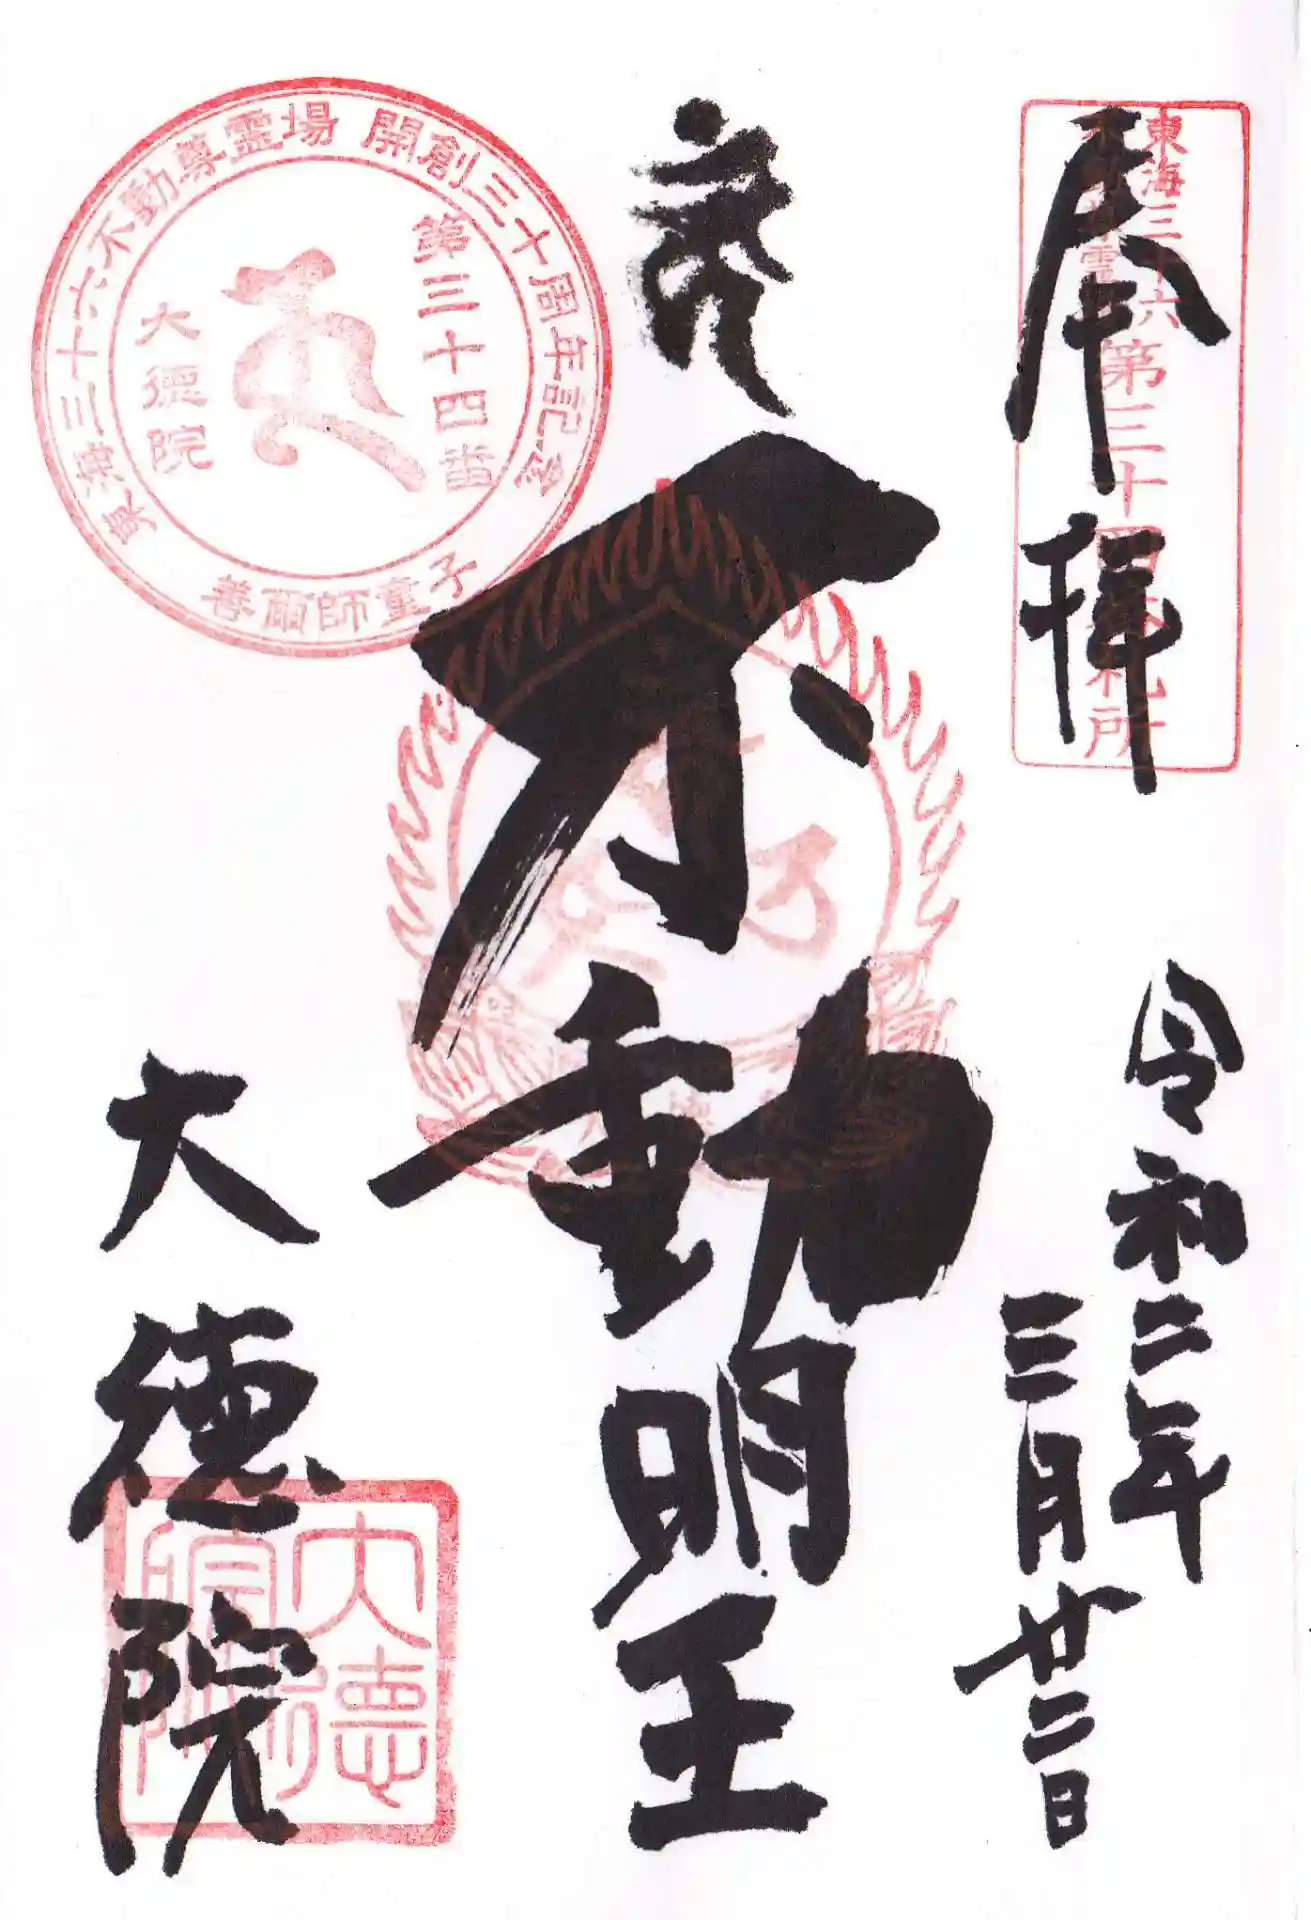 奉拝
東海三十六
不動尊霊場
第三十四番札所
令和二年
三月廿二日
不動明王
大徳院
東海三十六不動尊霊場 開創三十周年記念
第三十四番
大徳院
善爾師童子
大徳院